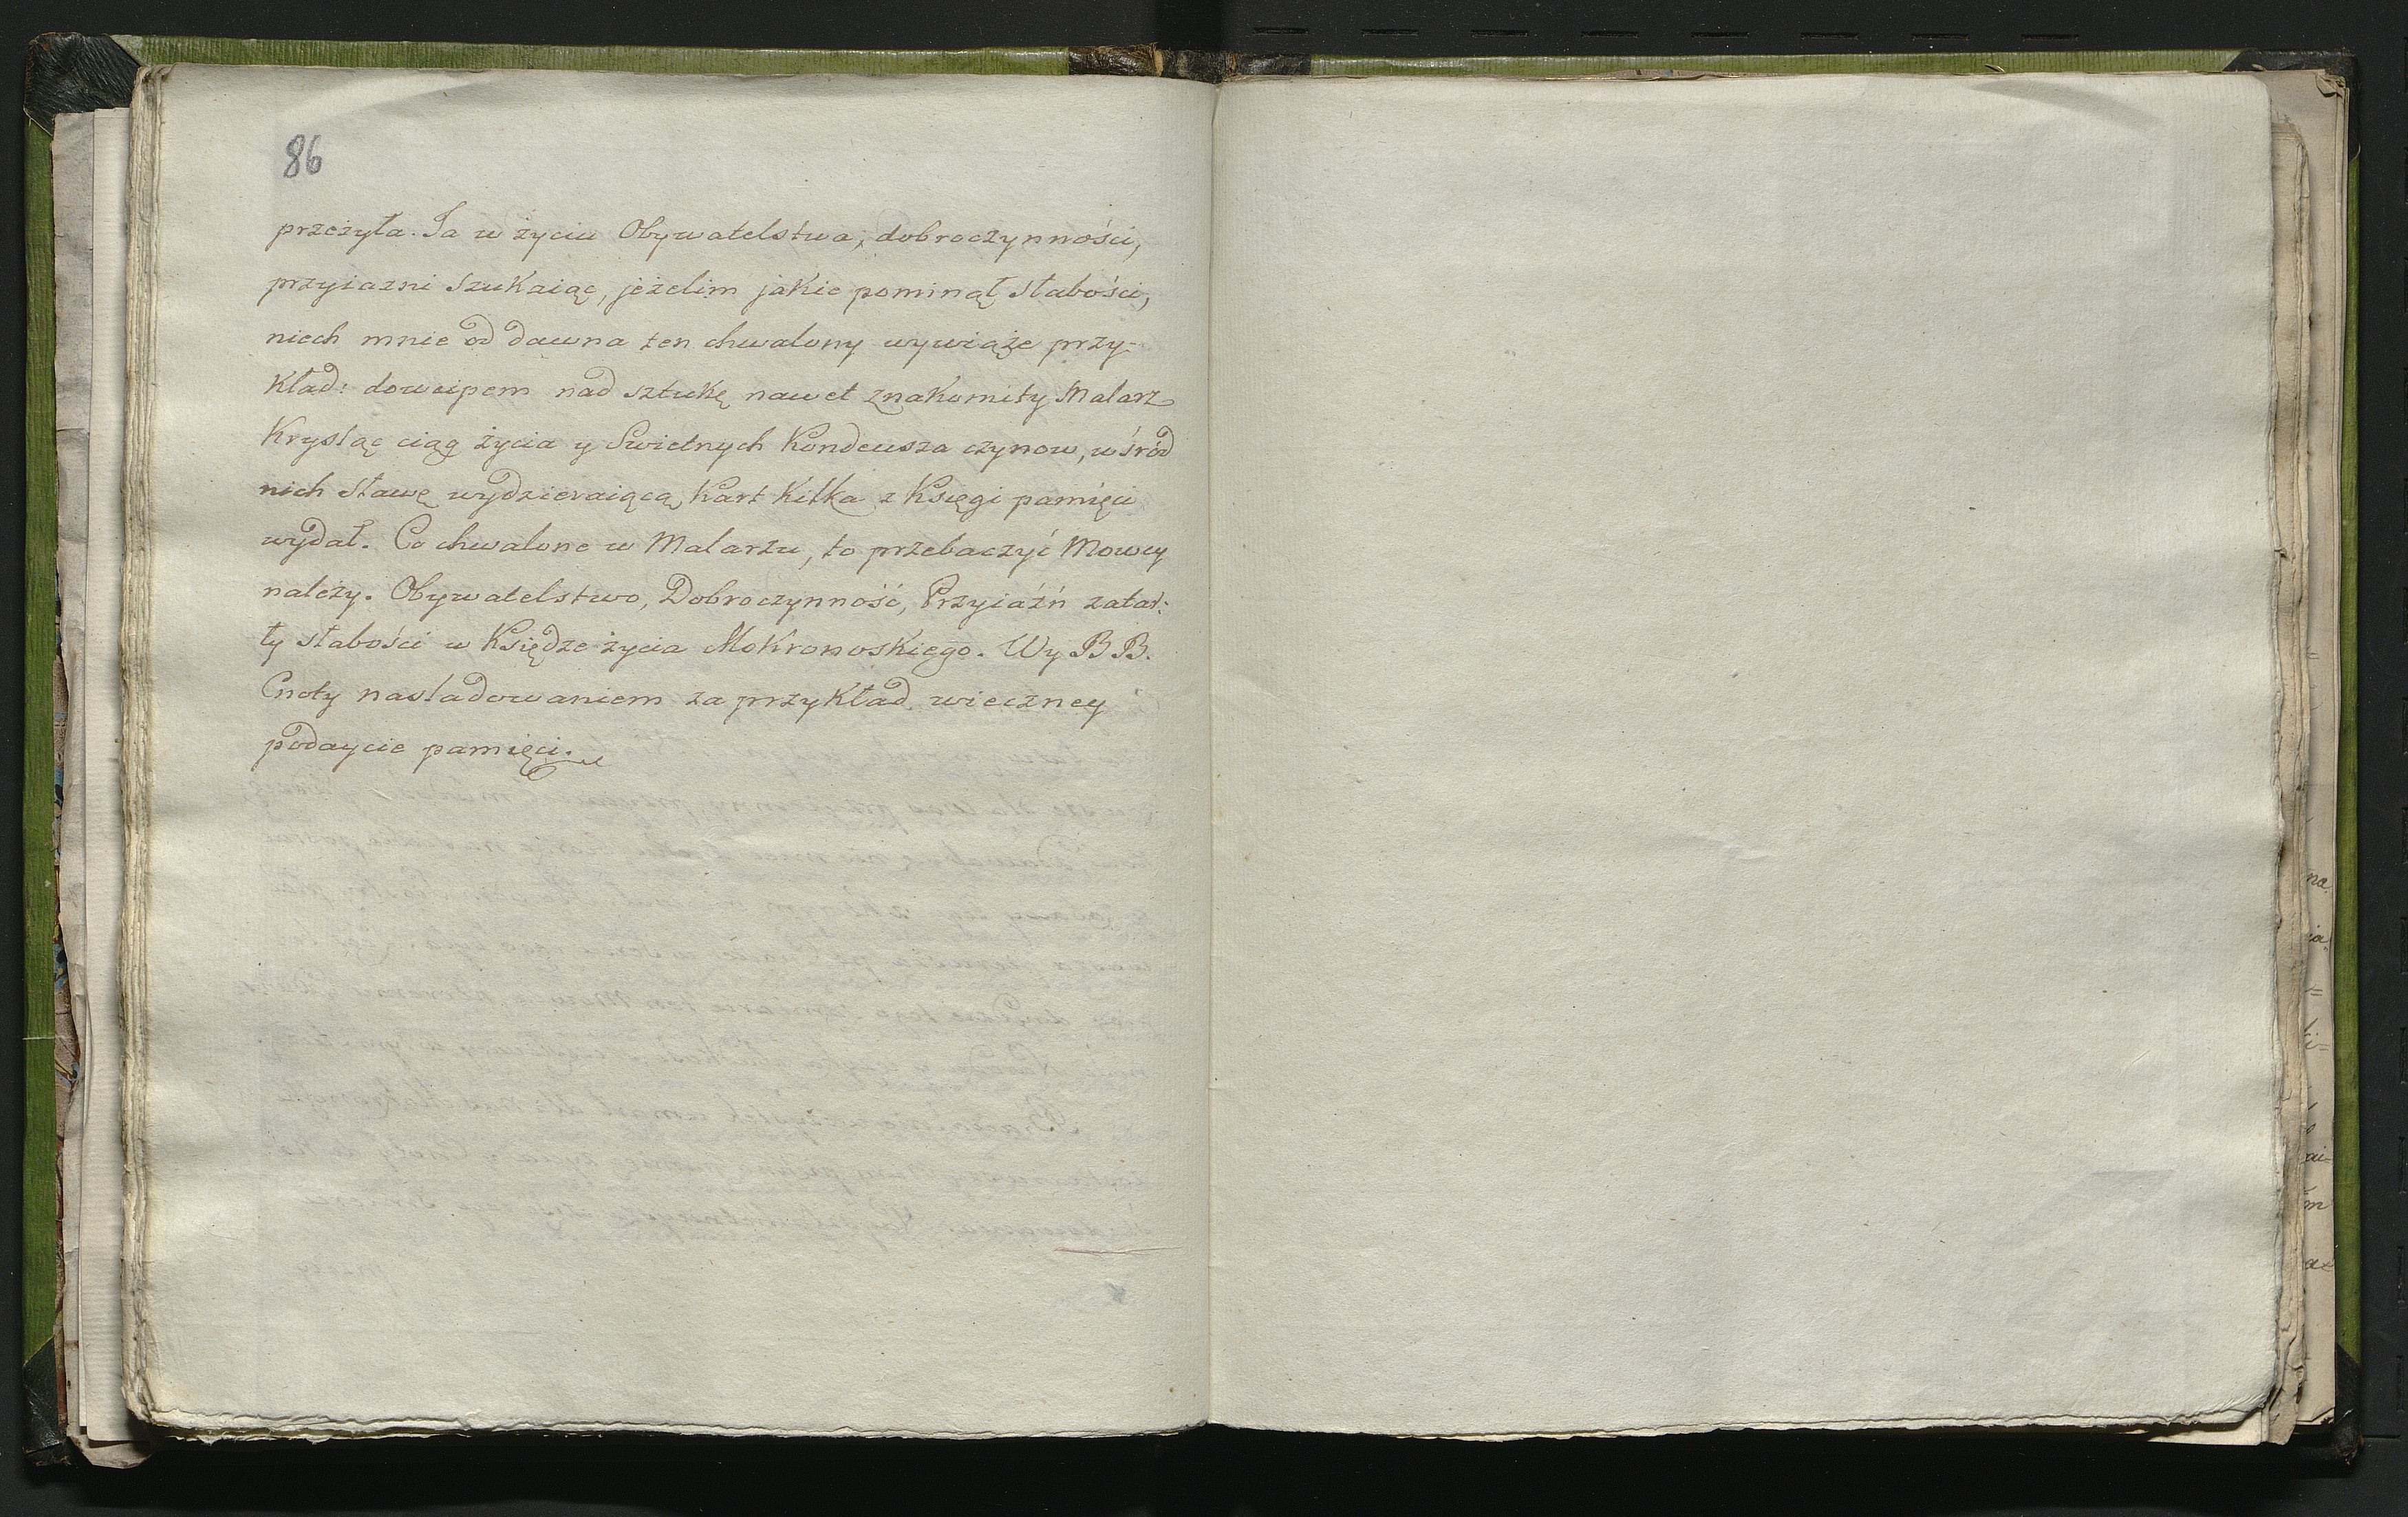 86
przeżyła. Ja w życiu Obywatelstwa, dobroczynności,
przyiazni szukaiąc, jeżelim jakie pominął słabości,
niech mnie od dawna ten chwalony wywiąże przy-
kład: dowcipem nad sztukę nawet znakomity Malarz
Kryśląc ciąg życia y Swietnych Kondeusza czynow, wśród
nich sławę wydzieraiącą Kart Kilka z Księgi pamięci
wydał. Co chwalone w Malarzu, to przebaczyć Mowcy
należy. Obywatelstwo, Dobroczynność, Przyiaźń zatar-
ły słabości w Księdze życia Mokronoskiego. Wy B B.
Cnoty nasladowaniem za przykład wieczney
podaycie pamięci.